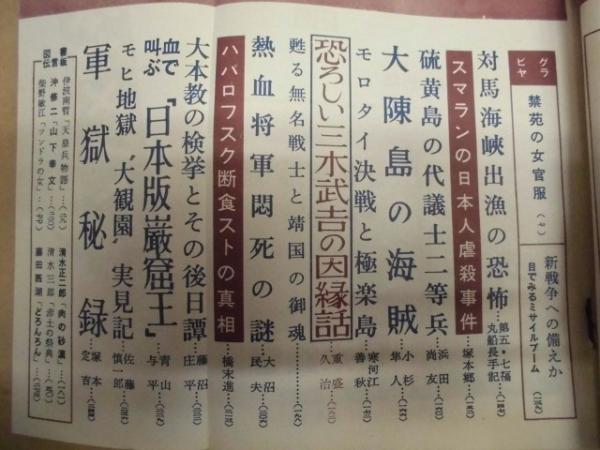 グラビヤ
禁苑の女官服…(七)
新戦争への備えか
目でみるミサイルブーム
対馬海峡出漁の恐怖…第五・七福丸船長手記
スマランの日本人虐殺事件…塚本郷
硫黄島の代議士二等兵…浜田尚友
大陳島の海賊…小杉隼人
モロタイ決戦と極楽島…寒河江善秋
恐ろしい三木武吉の因縁話…重盛久治
甦る無名戦士と靖国の御魂
熱血将軍悶死の謎…大沼民夫
ハバロフスク断食ストの真相…橋末進
大本教の検挙とその後日譚…藤沼庄平
血で叫ぶ『日本版巌窟王』…青山与平
モヒ地獄〝大観園〟実見記…佐藤慎一郎
軍獄秘録…塚本定吉
清水正二郎「肉の砂漠」
清水三郎「赤土の祭典」
藤田西湖「どろんろん」
伊波南哲「天皇兵物語」
沖修二「山下奉文」
柴野敏江「ツンドラの女」